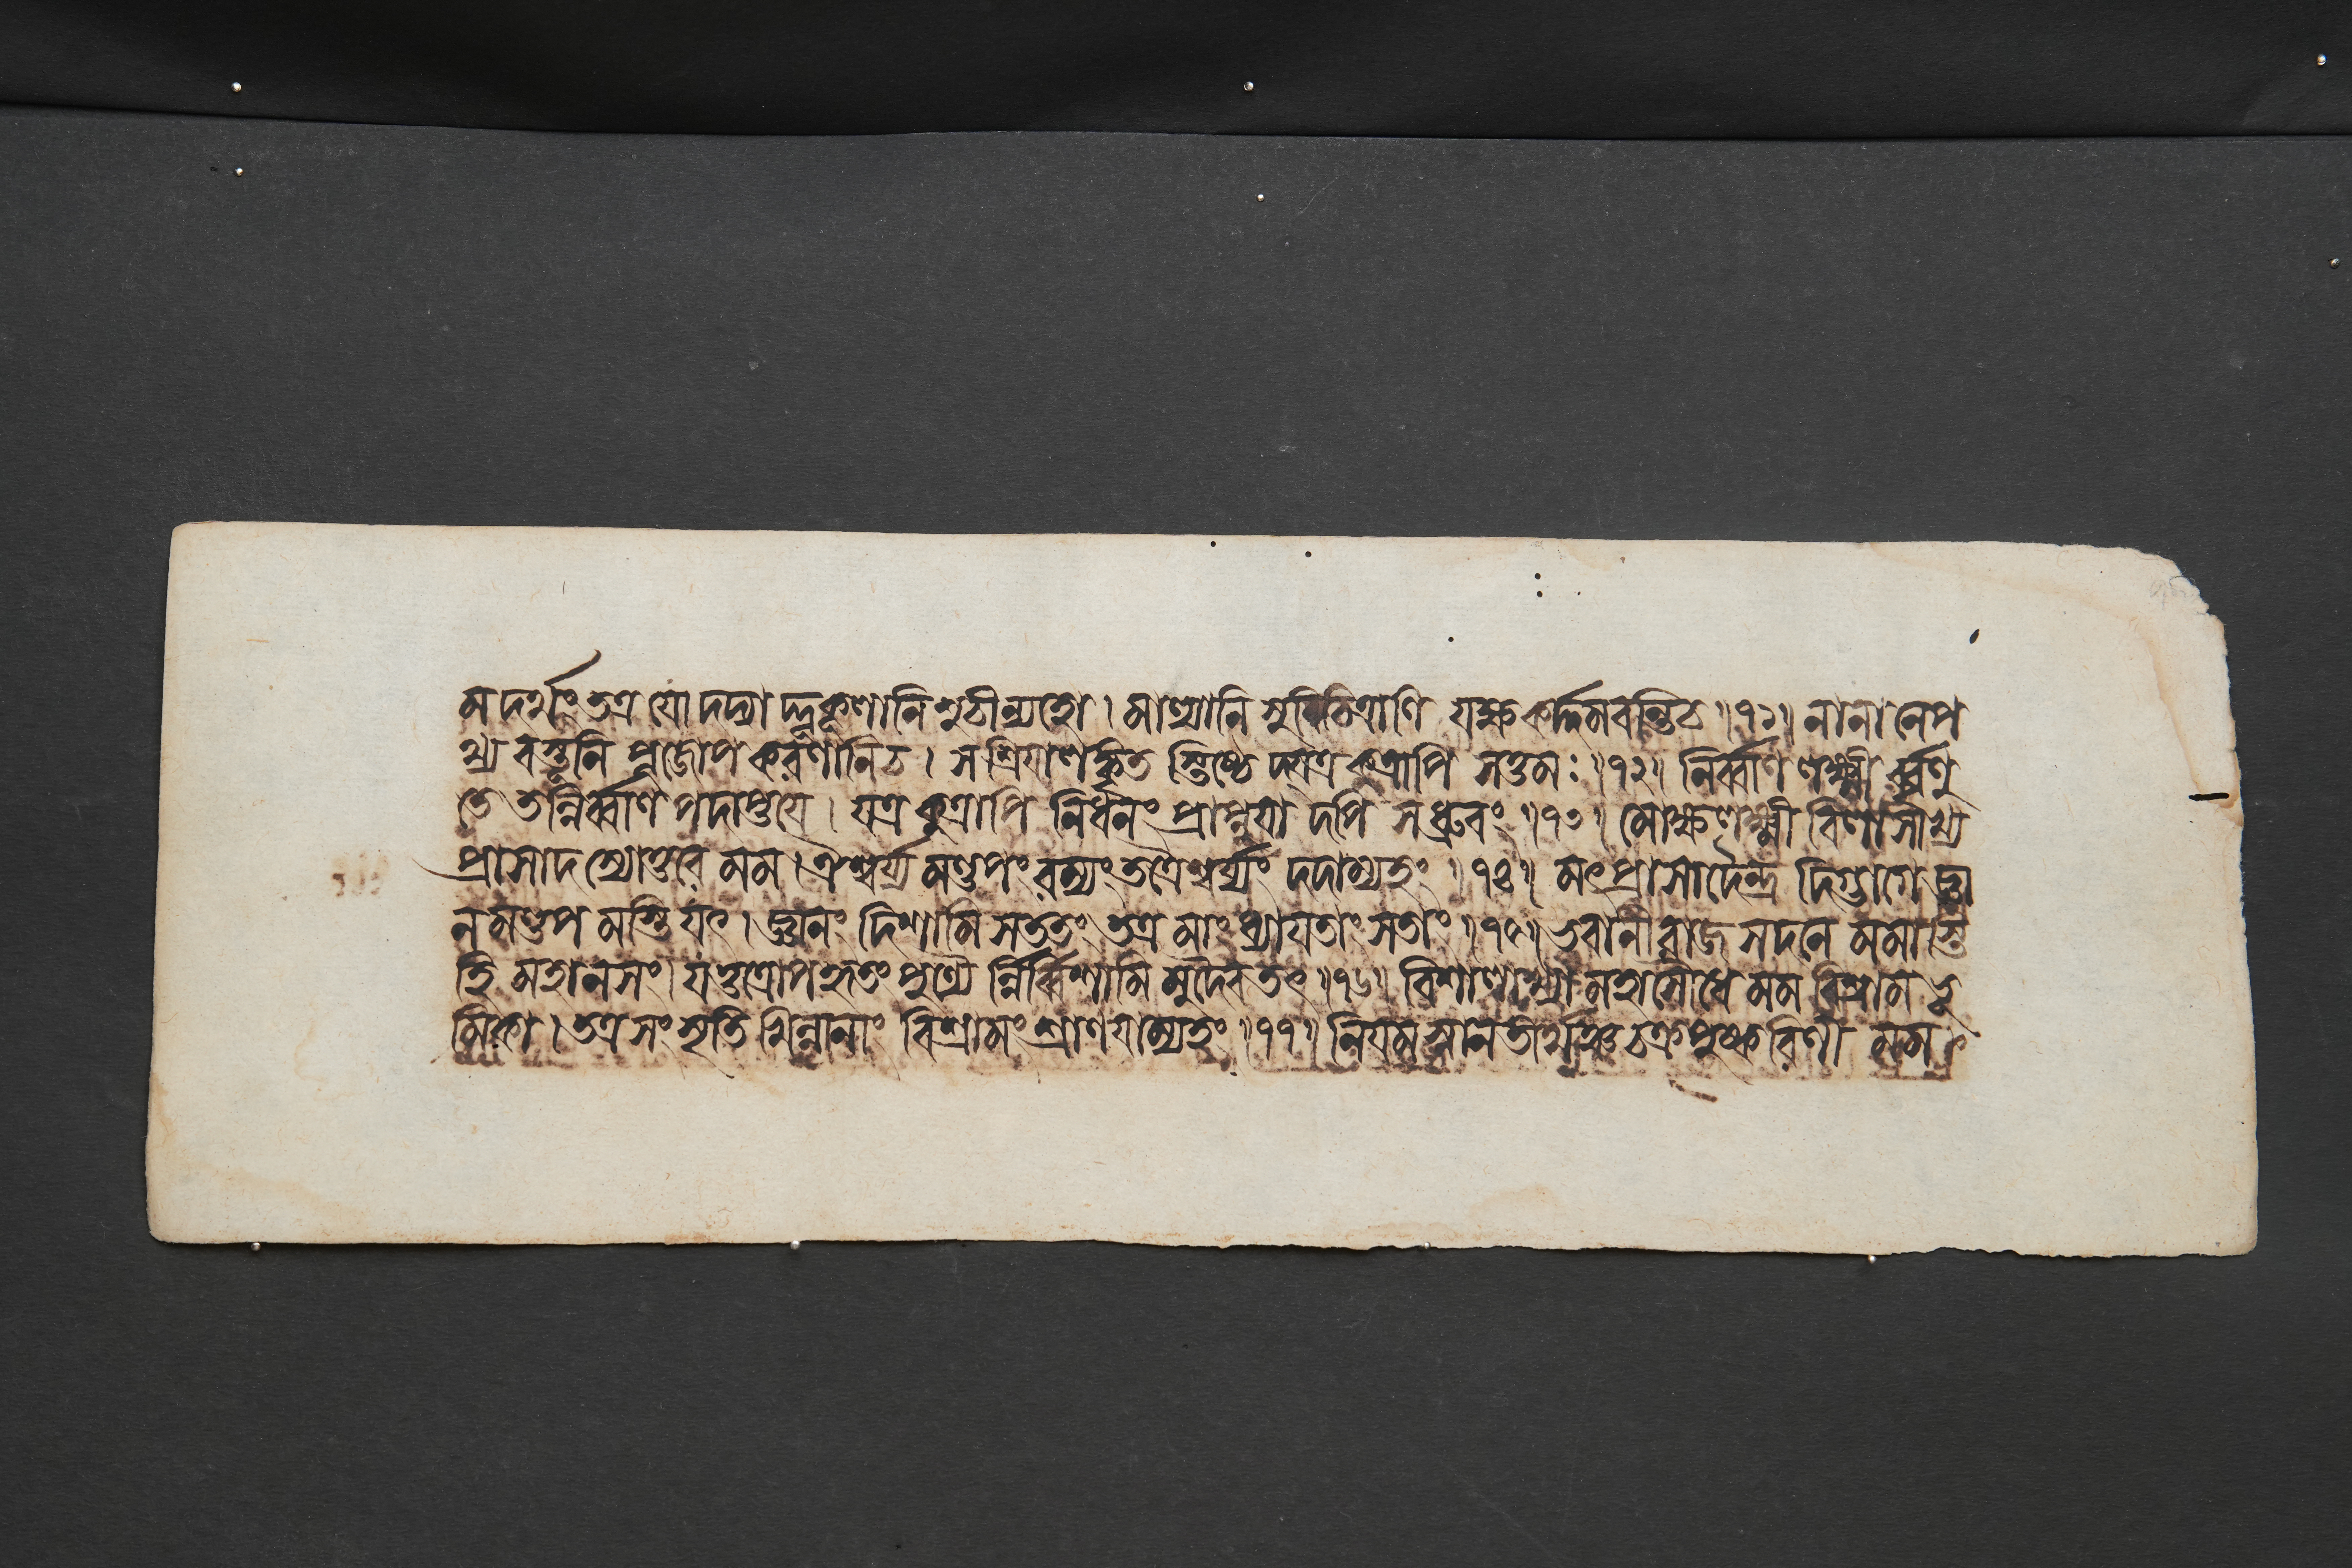 মদর্থং তত্র যো দদ্যাদ্দুকূলানি শুচীন্যহো । মাল্যানি সুবিচিত্রাণি যক্ষকর্দ্দমবন্তি চ ॥৭১॥ নানানেপ
থ্য বস্তূনি পূজোপকরণানি চ । স শ্রিয়ালঙ্কৃতস্তিষ্ঠেদ্যত্র কুত্রাপি সত্তমঃ ॥৭২॥ নির্ব্বাণলক্ষ্মীর্ব্বৃণু
তে তন্নির্ব্বাণপদাপ্তয়ে । যত্র কুত্রাপি নির্ধনং প্রাপ্নুয়াদপি স ধ্রুবং ॥৭৩॥ মোক্ষলক্ষ্মীবিলাসাখ্য
প্রাসাদস্যোত্তরে মম । ঐশ্বর্য্যমণ্ডপং রম্যং তত্রৈশ্বর্য্যং দদাম্যহং ॥৭৪॥ মৎপ্রাসাদৈন্দ্রদিগ্ভাগে জ্ঞা
নমণ্ডপমস্তি যৎ । জ্ঞানং দিশামি সততং তত্র মাং ধ্যায়তাং সতাং ॥৭৫॥ ভবানীরাজসদনে মমাস্তি
হি মহানসং । যত্তত্রোপহৃতং পুণ্যৈর্ন্নির্ব্বিশামি মুদৈব তৎ ॥৭৬॥ বিশালাক্ষ্যা মহাসৌধে মম বিশ্রামভূ
মিকা । তত্র সংসৃতিখিন্নানাং বিশ্রামং শ্রাণয়াম্যহং ॥৭৭॥ নিয়মস্নানতীর্থঞ্চ চক্রপুষ্করিণী মম